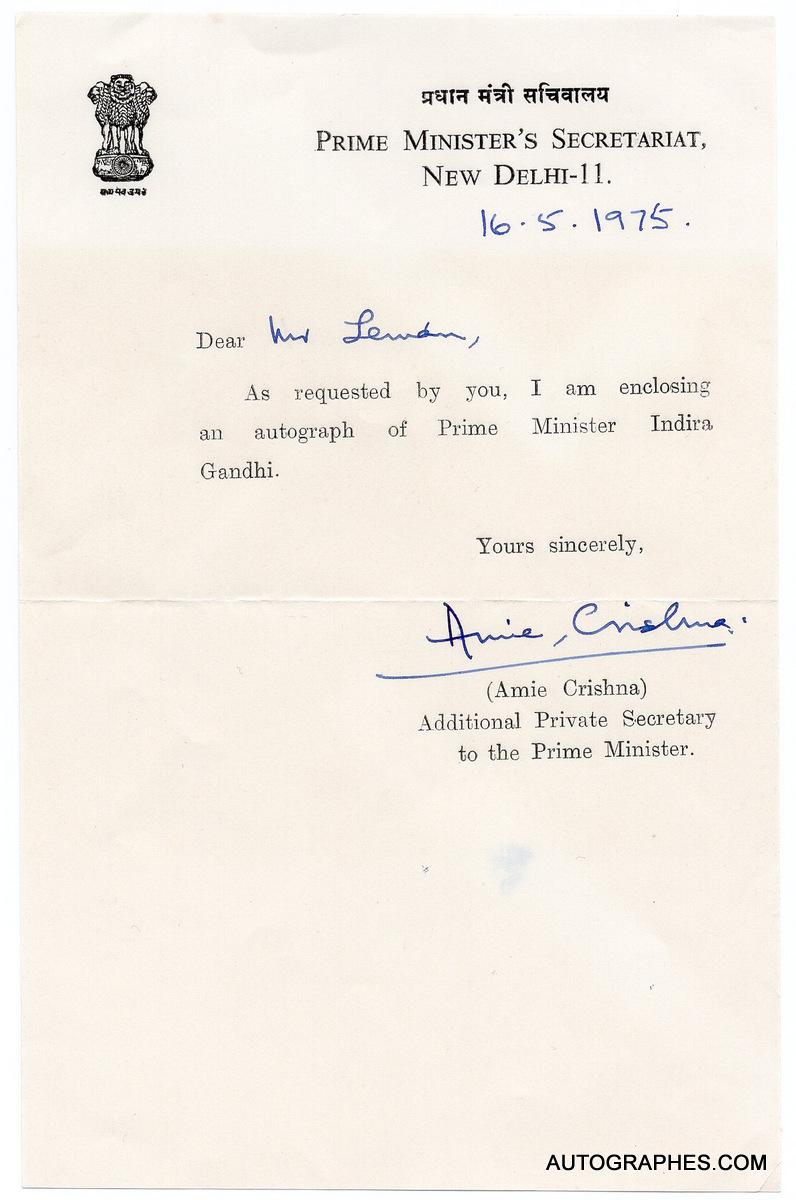 प्रधान मंत्री सचिवालय
PRIME MINISTER'S SECRETARIAT,
NEW DELHI-11.
सत्यमेव जयते
16.5.1975.
Dear Mr Leman,
As requested by you, I am enclosing
an autograph of Prime Minister Indira
Gandhi.
Yours sincerely,
Amie, Crishna.
(Amie Crishna)
Additional Private Secretary
to the Prime Minister.
AUTOGRAPHES.COM